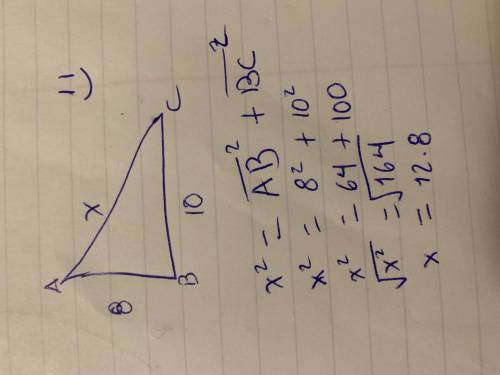 11)
A
x
8
B
10
C
x² = AB² + BC²
x² = 8² + 10²
x² = 64 + 100
√x² = √164
x = 12.8